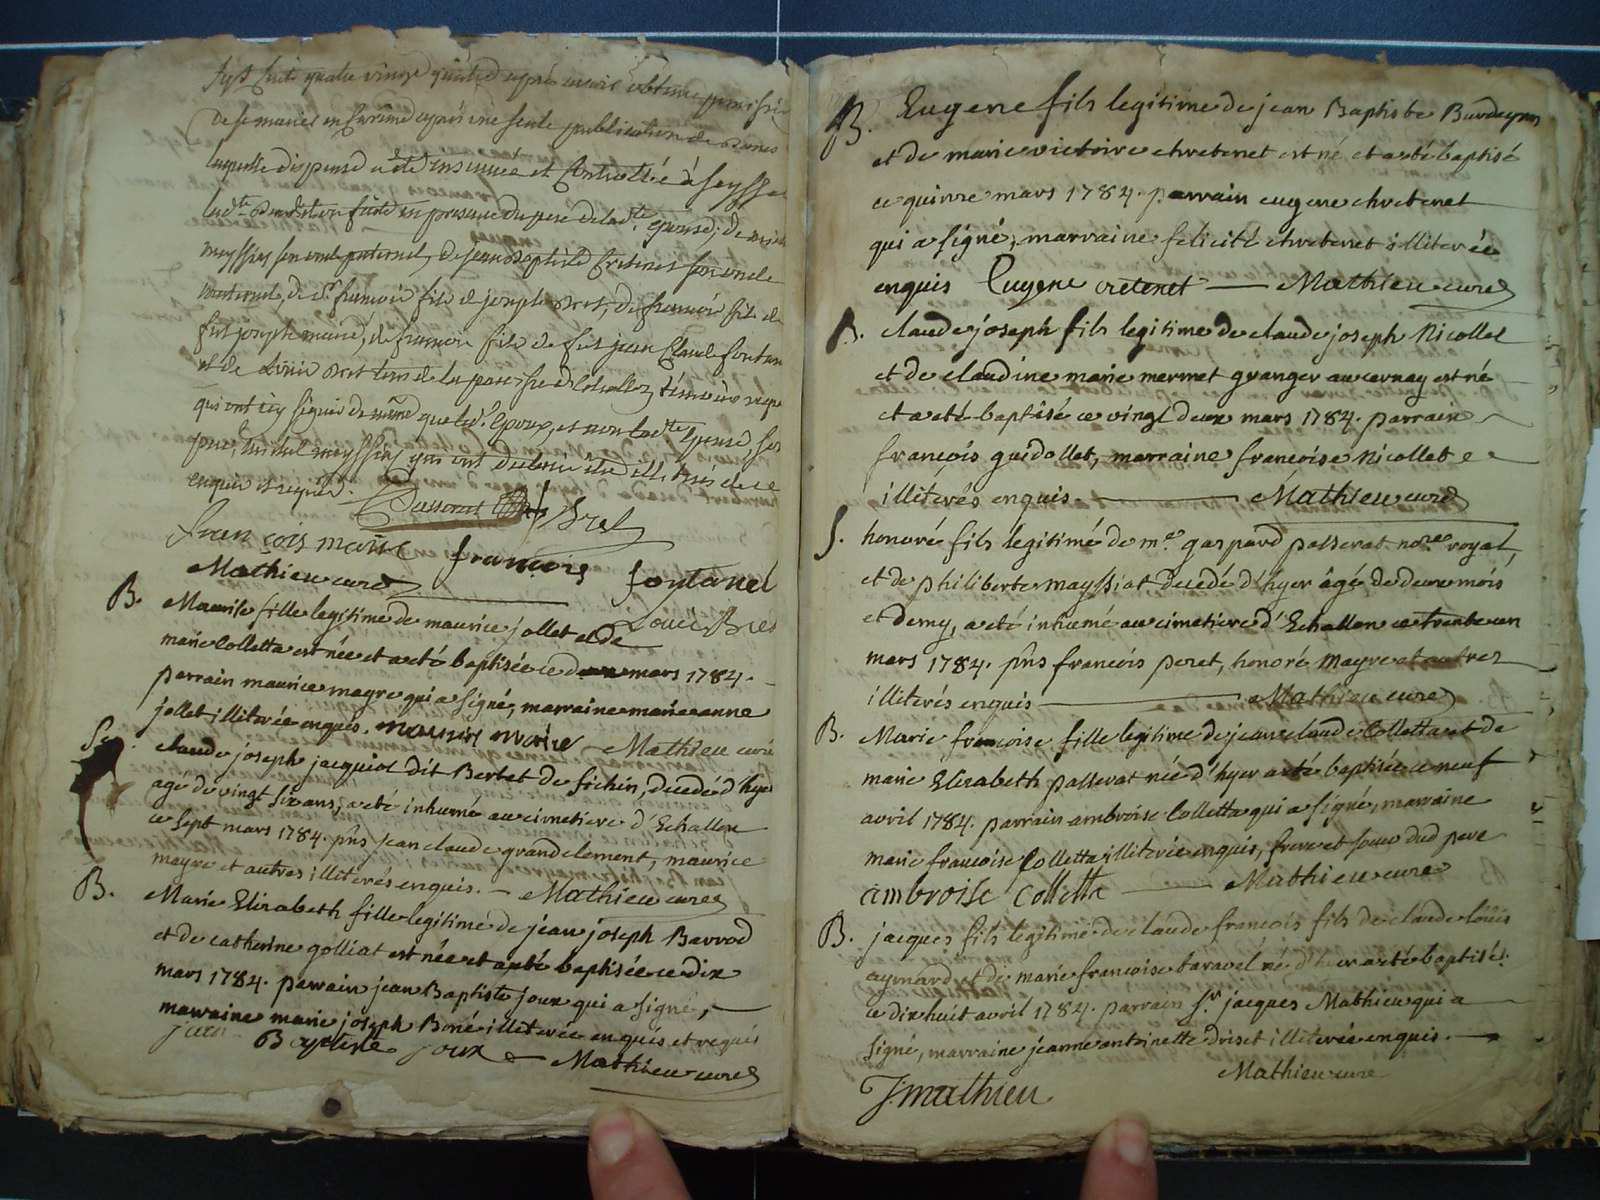 mil sept cent quatre vingt quatre après avoir obtenu permission
de se marier en Carême après une seule publication de bans
laquelle dispense a été insinuée et Controllée à
laditte Benediction faite en presence du pere de lad.te épouse, de
mayssiat son oncle paternel, de jean Baptiste son oncle
maternel, de sr. françois fils de joseph Bret, de françois fils de
feu joseph maire, de françois fils de feu jean Claude fontanel
et de Louis Bret tous de la paroisse d'Echallon témoins requis
qui ont icy signés de même que led.t Epoux, et non lad.te Epouse, son
pere, mayssiat qui ont declaré être illiterés de ce
enquis et requis.
Passerat Bret
françois maire françois fontanel
Mathieu curé Louis Bret
B. Maurise fille legitime de maurice jollet et de
marie Colletta est née et a eté baptisée ce deux mars 1784.
parrain maurice mayre qui a signé, marraine marie anne
jollet illiterée enquis. mauris maire Mathieu curé
S. claude joseph jacquiot dit Berbet de sichin, decedé d'hyer
agé de vingt six ans, a eté inhumé au cimetiere d'Echallon
ce sept mars 1784. pns jean claude grandclement, maurice
mayre et autres illiterés enquis. Mathieu curé
B. Marie Elizabeth fille legitime de jean joseph Barrod
et de catherine golliat est née et a eté baptisée ce dix
mars 1784. parrain jean Baptiste joux qui a signé,
marraine marie joseph Boné illiterée enquis et requis
jean Baptiste joux Mathieu curé
B. Eugene fils legitime de jean Baptiste Burdeyron
et de marie victoire chretenet est né et a eté baptisé
ce quinze mars 1784. parrain eugene chretenet
qui a signé, marraine felicité chretenet illiterée
enquis Eugene cretenet Mathieu curé
B. claude joseph fils legitime de claude joseph Nicollet
et de claudine marie mermet granger au cernay est né
et a eté baptisé ce vingt deux mars 1784. parrain
françois guidollet, marraine françoise Nicollet
illiterés enquis Mathieu curé
S. honoré fils legitime de me. gaspard passerat nore. royal,
et de philiberte mayssiat decedé d'hyer âgé de deux mois
et demy, a eté inhumé au cimetiere d'Echallon ce trente un
mars 1784. pns françois peret, honoré Mayre et autres
illiterés enquis Mathieu curé
B. Marie françoise fille legitime de jean claude Colletta et de
marie Elizabeth passerat née d'hyer a eté baptisée ce neuf
avril 1784. parrain ambroise Colletta qui a signé, marraine
marie françoise Colletta illiterée enquis, frere et soeur dud pere
ambroise Colletta Mathieu curé
B. jacques fils legitime de claude françois fils de claude louis
aymard et de marie françoise taravel né d'hyer a eté baptisé
ce dix huit avril 1784. parrain sr. jacques Mathieu qui a
signé, marraine jeanne antoinette driset illiterée enquis.
Mathieu curé
J. mathieu